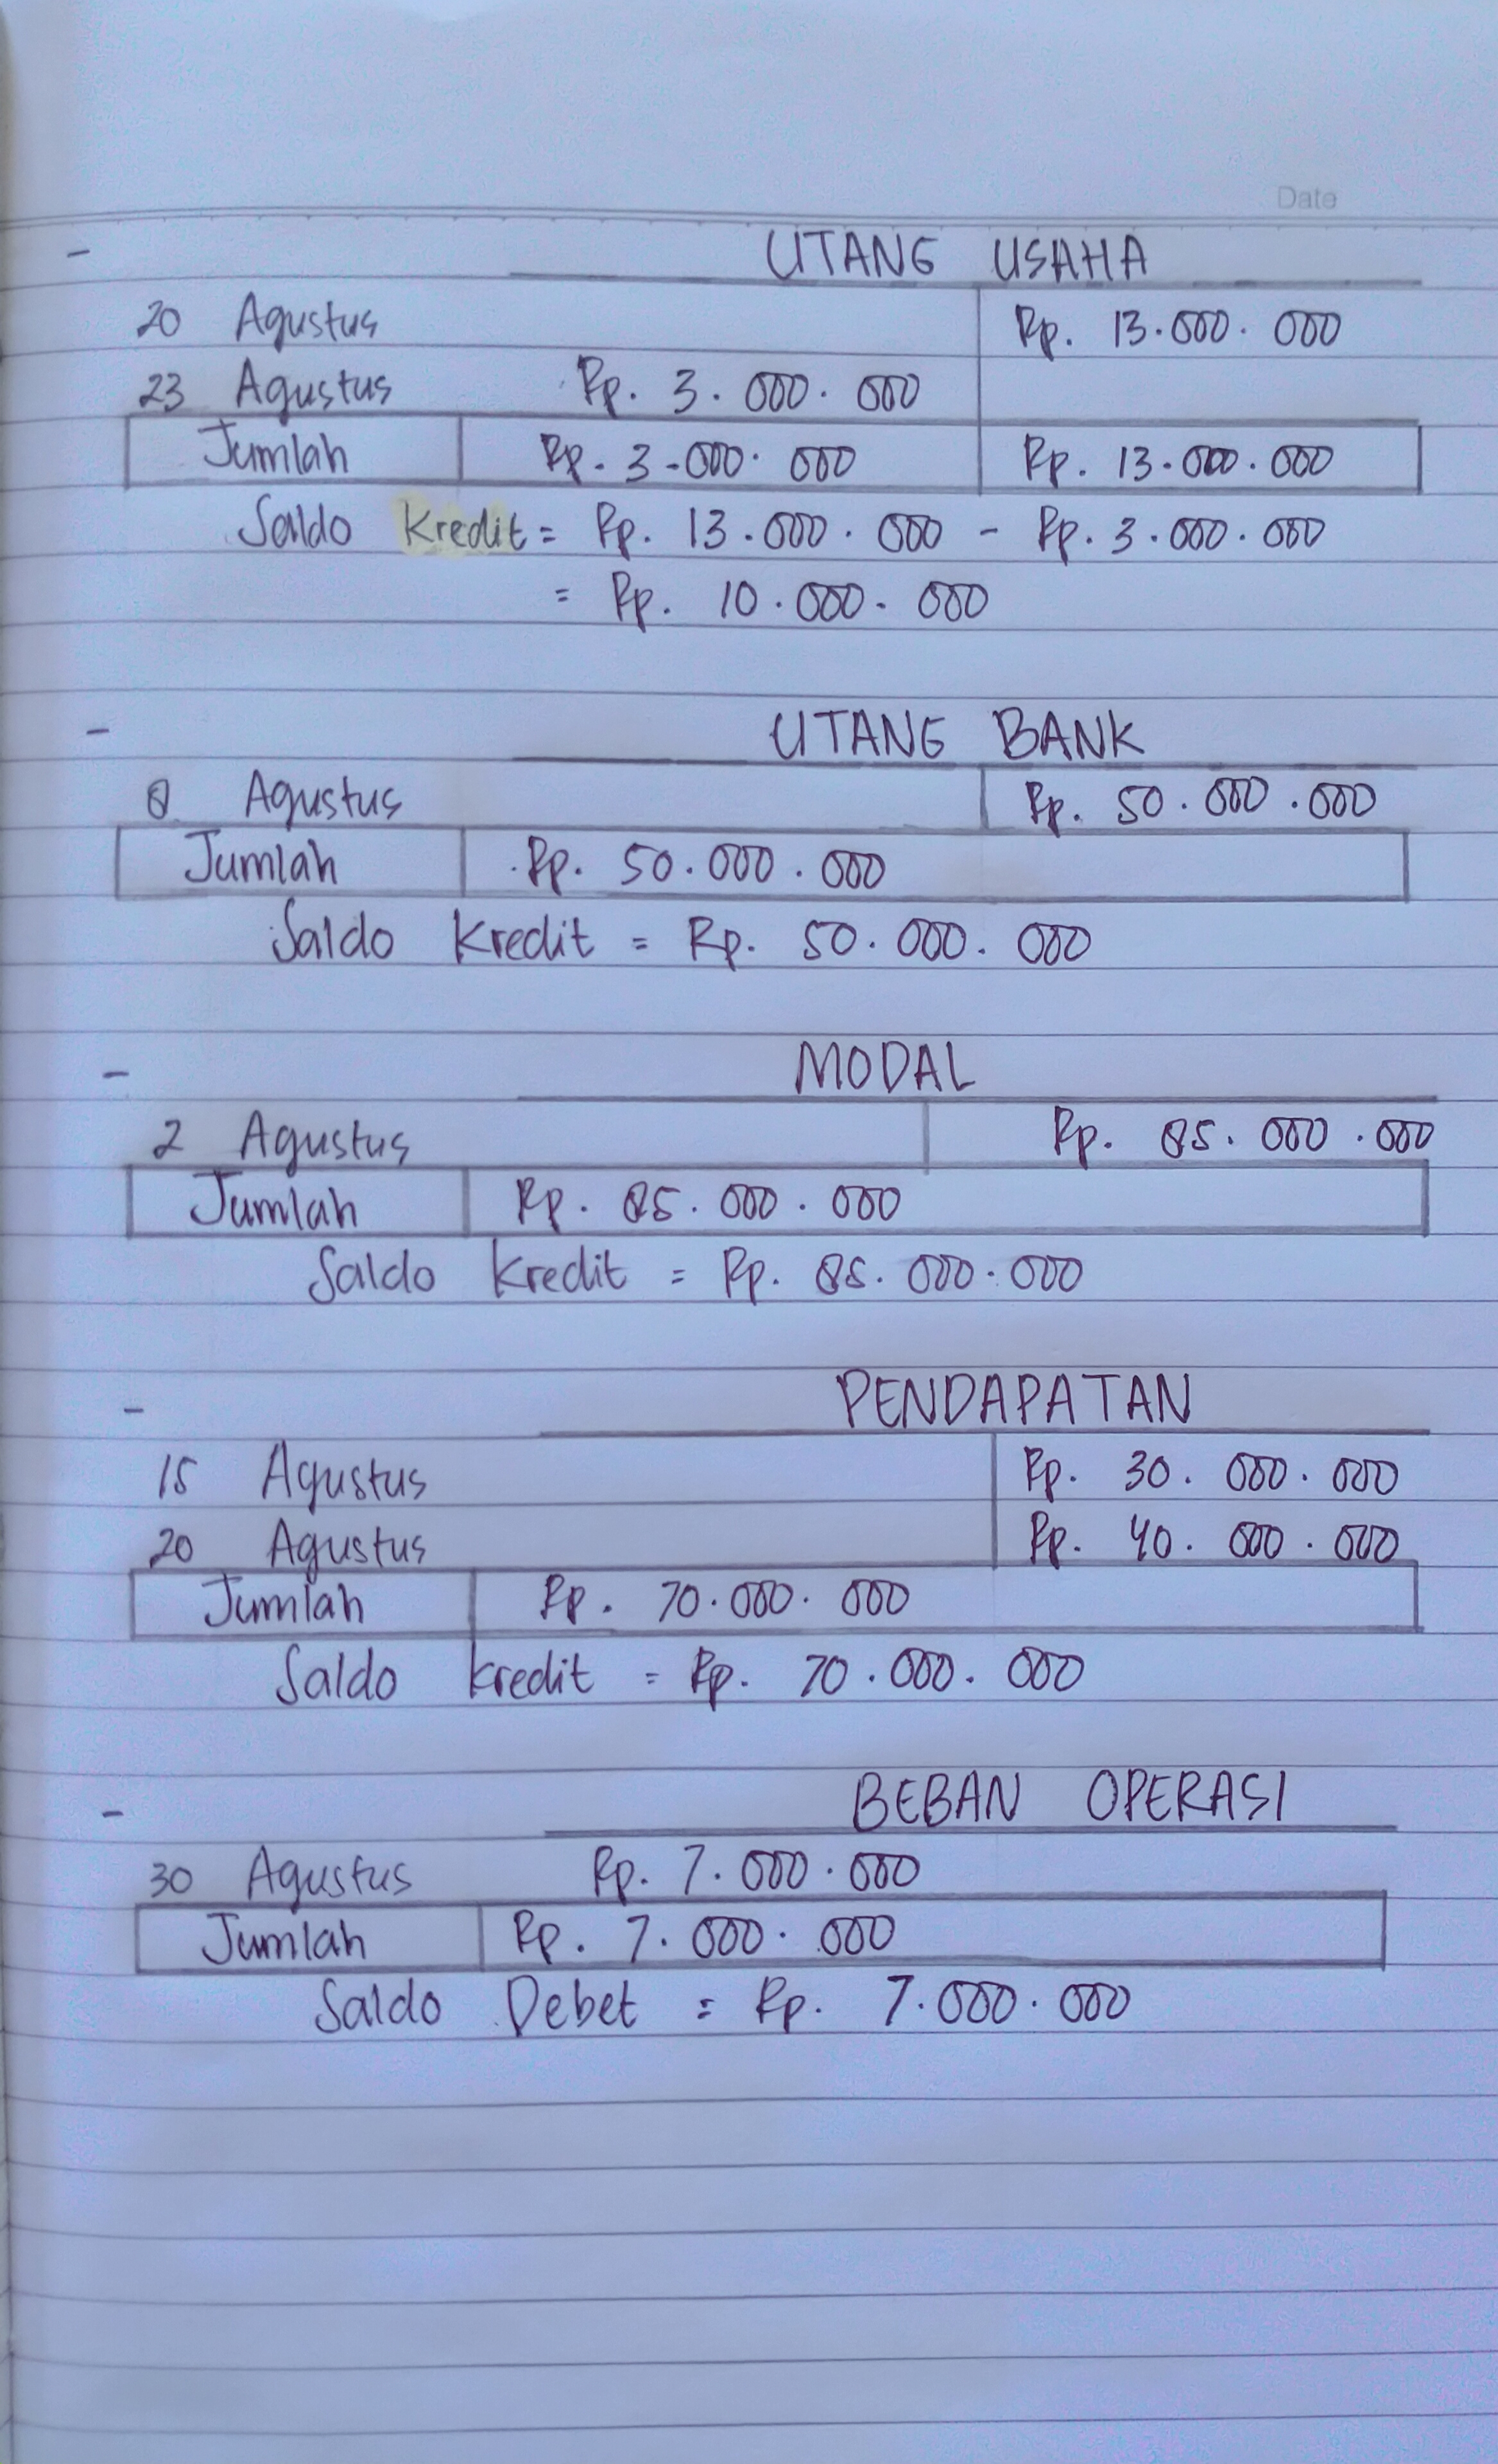 Date
- UTANG USAHA
20 Agustus Rp. 13.000.000
23 Agustus Rp. 3.000.000
Jumlah Rp. 3.000.000 Rp. 13.000.000
Saldo Kredit = Rp. 13.000.000 - Rp. 3.000.000
= Rp. 10.000.000
- UTANG BANK
8 Agustus Rp. 50.000.000
Jumlah Rp. 50.000.000
Saldo Kredit = Rp. 50.000.000
- MODAL
2 Agustus Rp. 85.000.000
Jumlah Rp. 85.000.000
Saldo Kredit = Rp. 85.000.000
- PENDAPATAN
15 Agustus Rp. 30.000.000
20 Agustus Rp. 40.000.000
Jumlah Rp. 70.000.000
Saldo Kredit = Rp. 70.000.000
- BEBAN OPERASI
30 Agustus Rp. 7.000.000
Jumlah Rp. 7.000.000
Saldo Debet = Rp. 7.000.000